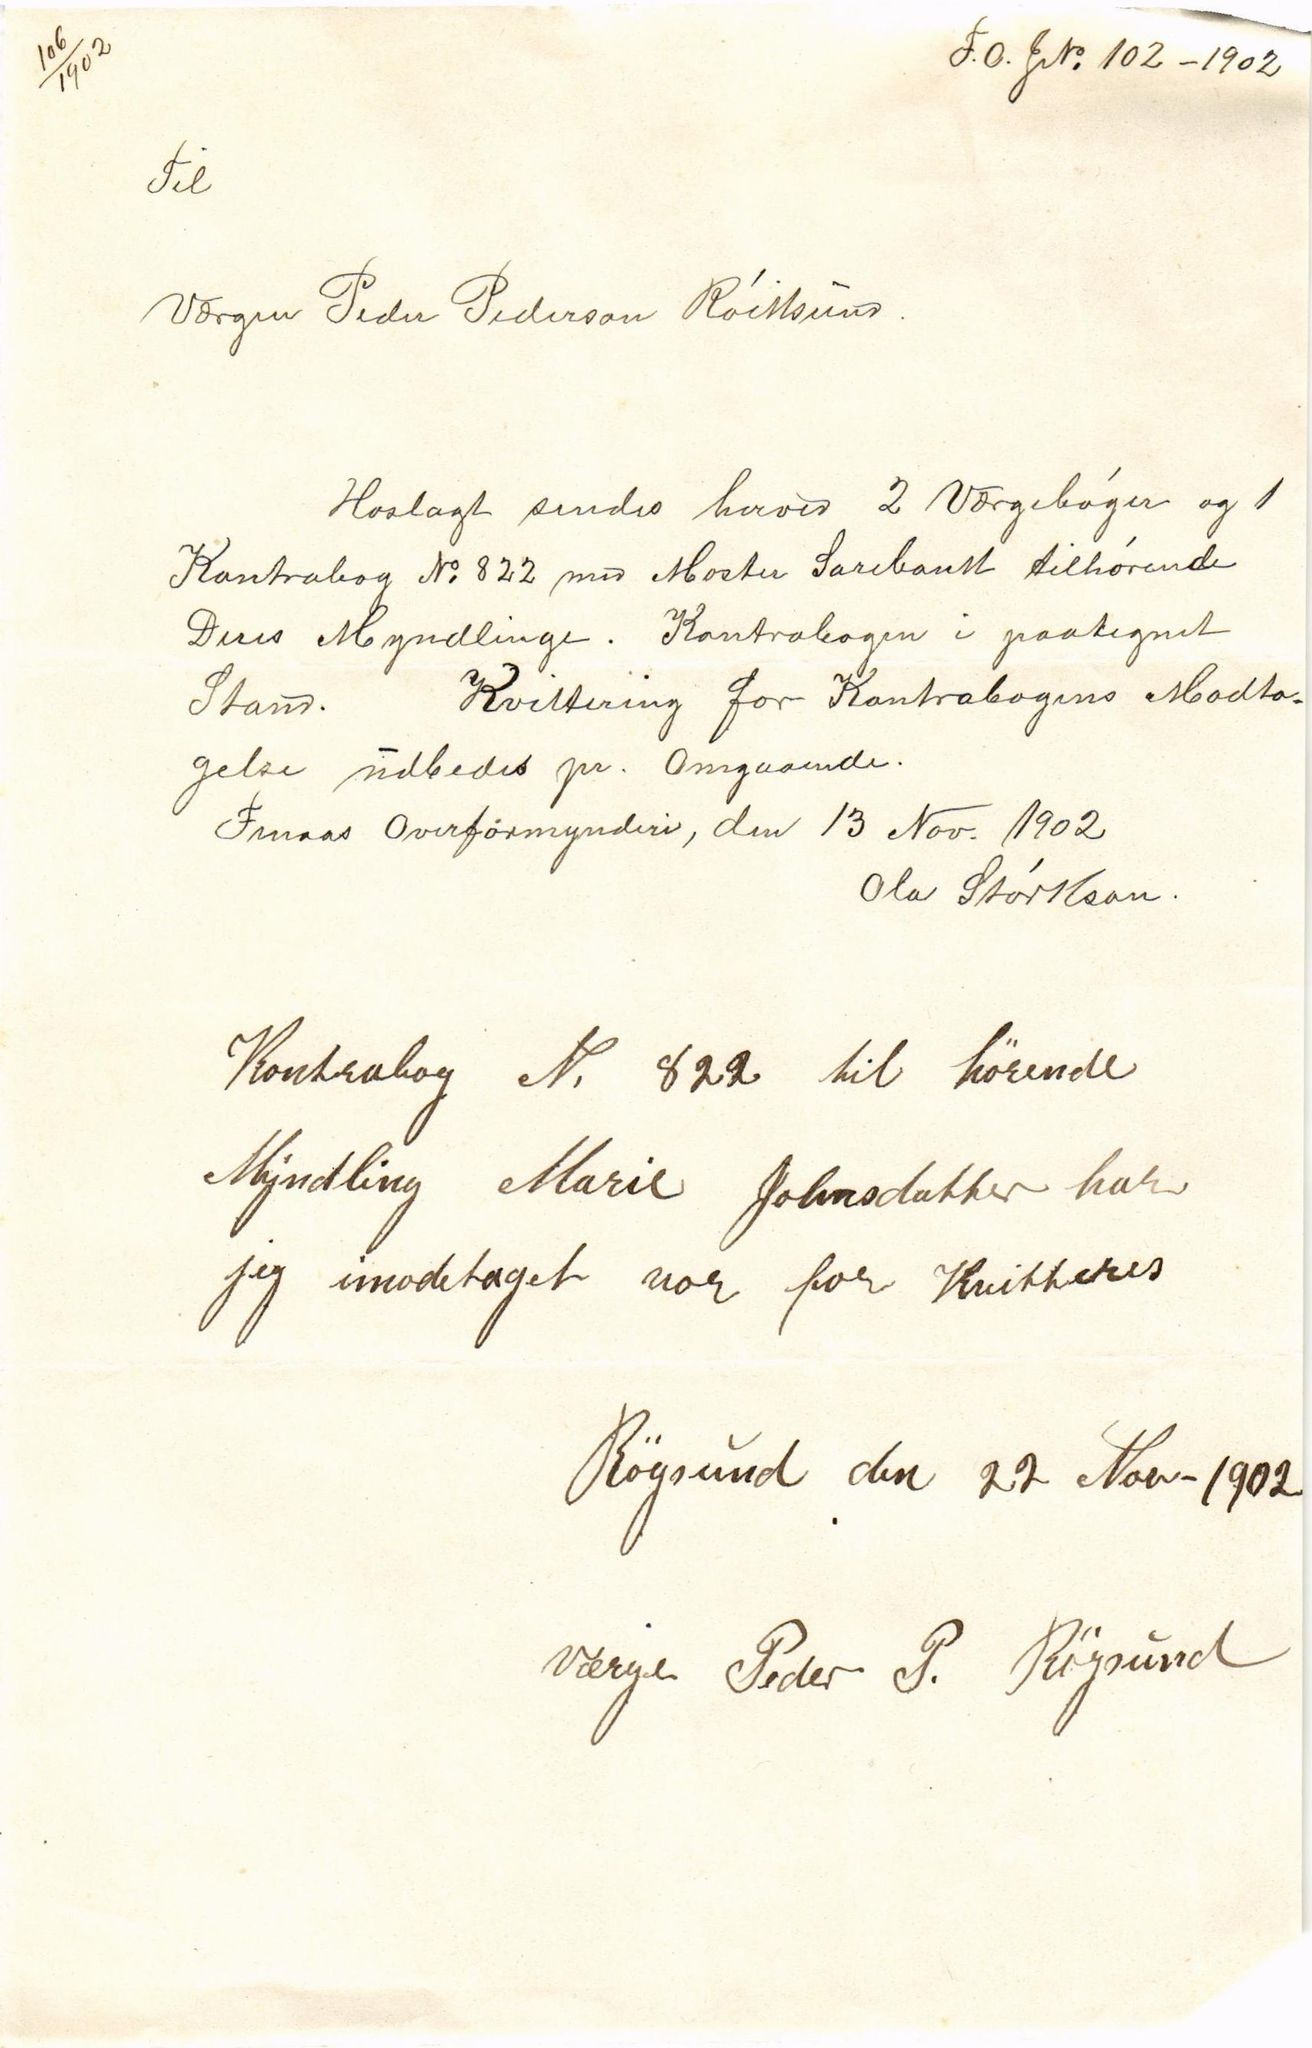 106/1902
F.O. J.No. 102 - 1902
Til
Værgen Peder Pederson Röiksund.
Hoslagt sendes herved 2 Værgebøger og 1
Kontrabog No. 822 med Moster Sarebank tilhørende
Deres Myndlinge. Kontrabogen i paategnet
Stand. Kvittering for Kontrabogens Modta-
gelse udbedes pr. Omgaaende.
Finaas Overformynderi, den 13 Nov. 1902
Ola Störkson.
Kontrabog N. 822 til hörende
Myndling Marie Johnsdatter har
jeg imodetaget vor for Kvitteres
Rögsund den 22 Nov - 1902
Værge Peder P. Rögsund